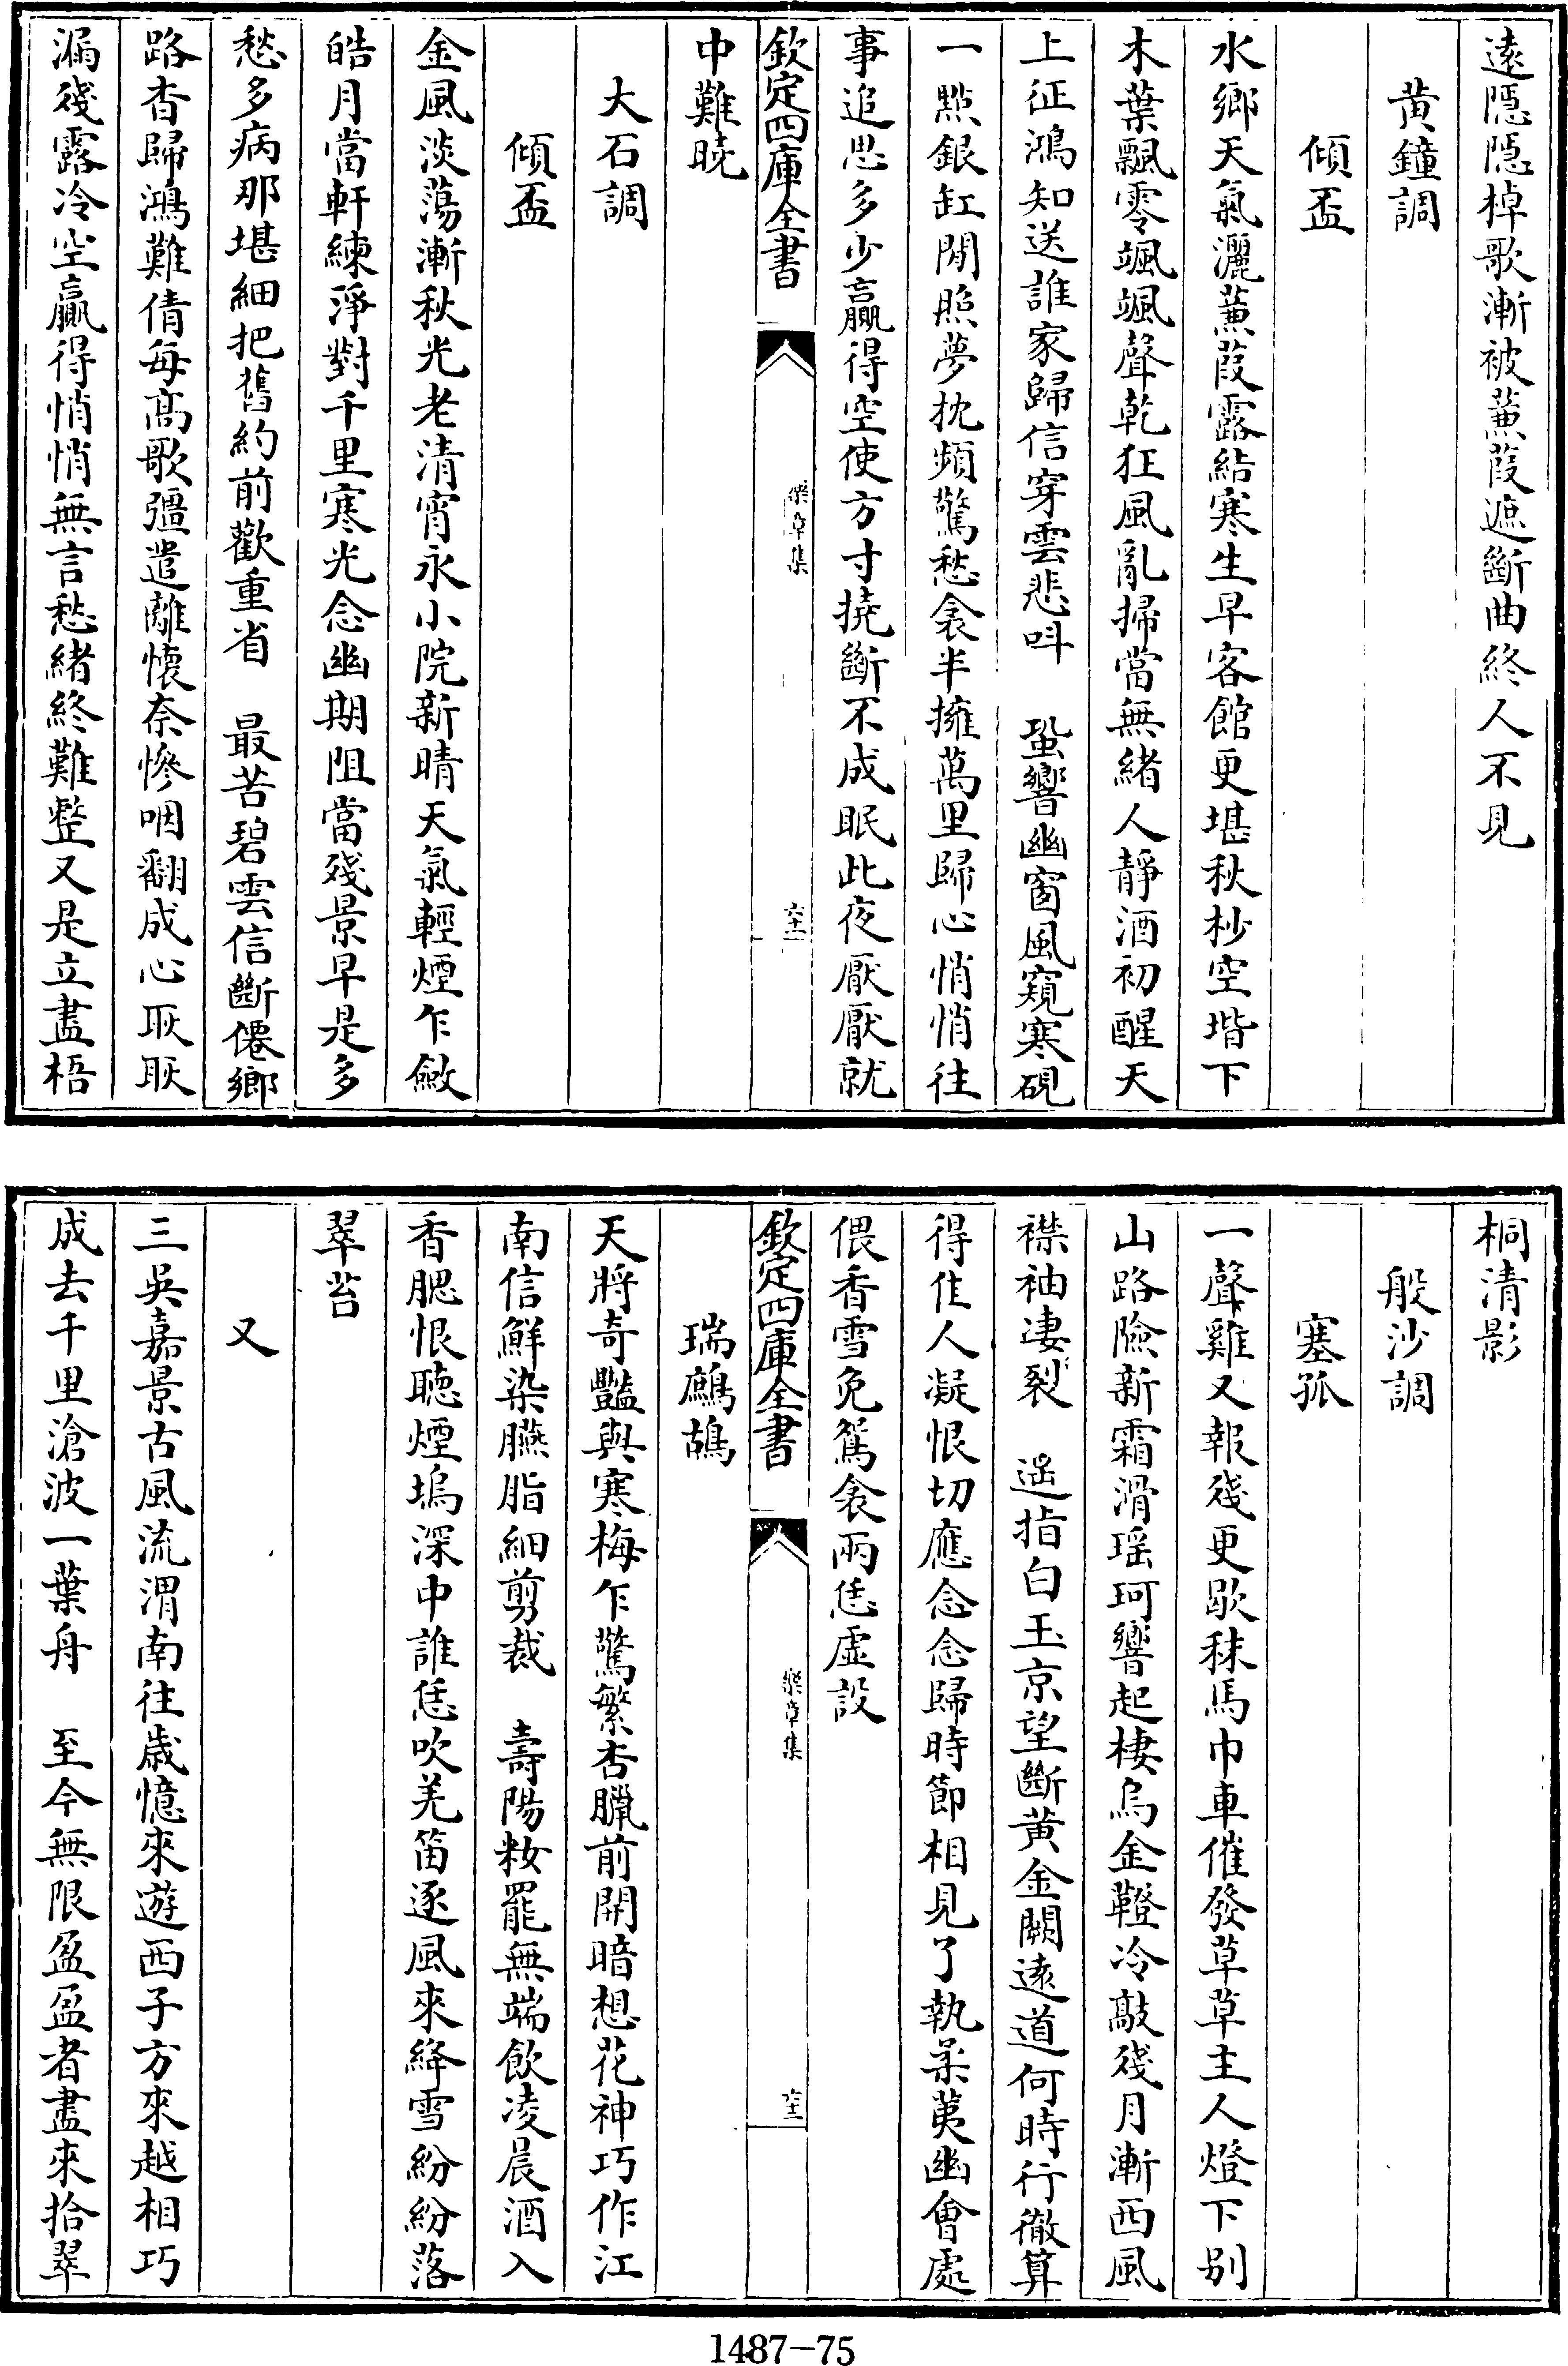 遠隱隱棹歌漸被蒹葭遮斷曲終人不見
黄鐘調
傾盃
水鄉天氣灑蒹葭露結寒生早客館更堪秋杪空堦下
木葉飄零颯颯聲乾狂風亂掃當無緒人靜酒初醒天
上征鴻知送誰家歸信穿雲悲呌　蛩響幽窗鼠窺寒硯
一點銀缸閒照夢枕頻驚愁衾半擁萬里歸心悄悄往
事追思多少贏得空使方寸撓斷不成眠此夜厭厭就
欽定四庫全書
樂章集
六十一
中難曉
大石調
傾盃
金風淡蕩漸秋光老清宵永小院新晴天氣輕煙乍斂
皓月當軒練淨對千里寒光念幽期阻當殘景早是多
愁多病那堪細把舊約前歡重省　最苦碧雲信斷僊鄉
路杳歸鴻難倩每高歌彊遣離懷奈慘咽翻成心耿耿
漏殘露冷空贏得悄悄無言愁緒終難整又是立盡梧
桐清影
般沙調
塞孤
一聲雞又報殘更歇秣馬巾車催發草草主人燈下别
山路險新霜滑瑶珂響起棲烏金鞾冷敲殘月漸西風
襟袖凄裂　遥指白玉京望斷黄金闕遠道何時行徹算
得佳人凝恨切應念念歸時節相見了執柔荑幽會處
偎香雪免鴛衾兩恁虛設
欽定四庫全書
樂章集
六十二
瑞鷓鴣
天將奇豔與寒梅乍驚繁杏臘前開暗想花神巧作江
南信鮮染臙脂細剪裁　壽陽粧罷無端飲凌晨酒入
香腮恨聽煙塢深中誰恁吹羌笛逐風來絳雪紛紛落
翠苔
又
三吳嘉景古風流渭南往歲憶來遊西子方來越相巧
成去千里滄波一葉舟　至今無限盈盈者盡來拾翠
1487-75